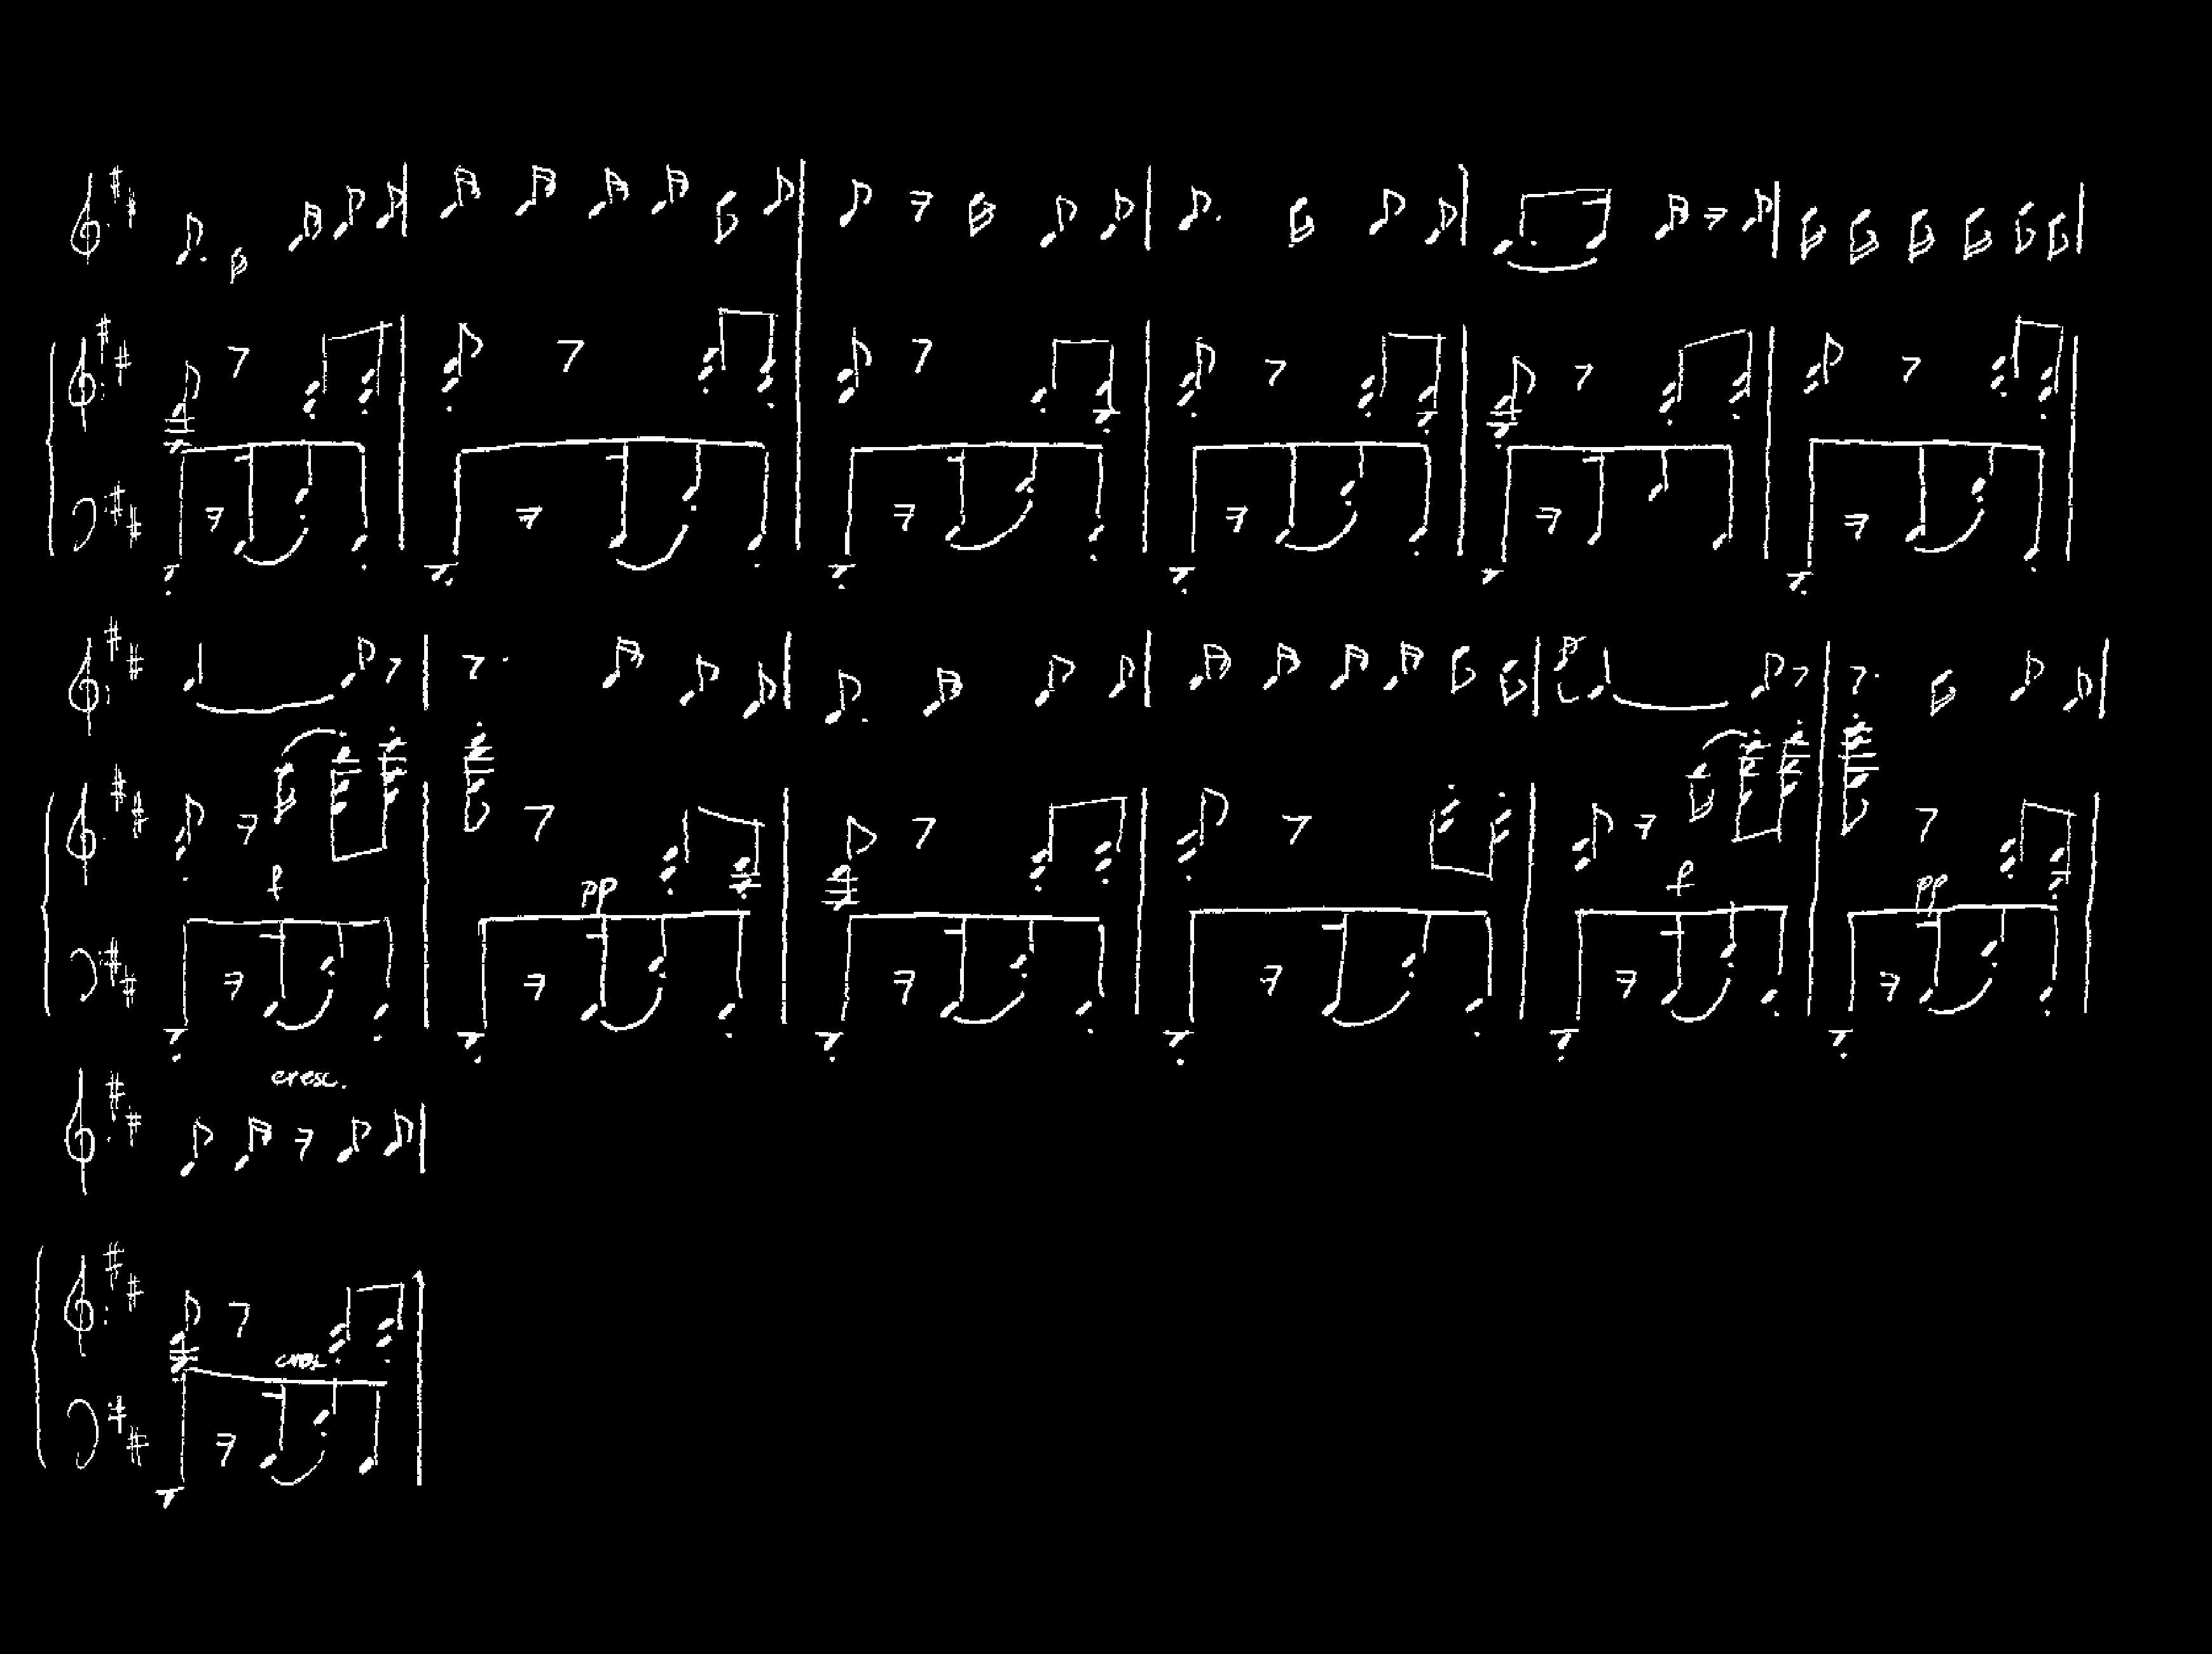 f
pp
f
pp
cresc.
cresc